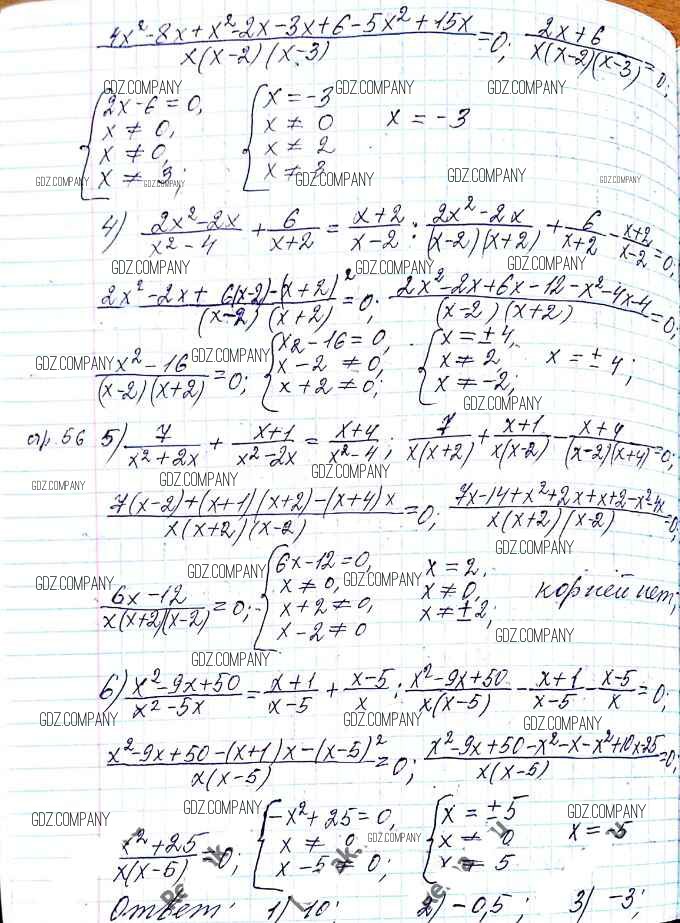 4x²-8x+x²-2x-3x+6-5x²+15x / x(x-2)(x-3) =0; 2x+6 / x(x-2)(x-3) =0;
GDZ.COMPANY GDZ.COMPANY GDZ.COMPANY GDZ.COMPANY
{ 2x-6=0, { x=-3
x≠0, x≠0 x=-3
x≠0, x≠2
x≠3; x≠3
GDZ.COMPANY GDZ.COMPANY GDZ.COMPANY GDZ.COMPANY GDZ.COMPANY
4) 2x²-2x / x²-4 + 6 / x+2 = x+2 / x-2 ; 2x²-2x / (x-2)(x+2) + 6 / x+2 - x+2 / x-2 =0;
GDZ.COMPANY GDZ.COMPANY GDZ.COMPANY
2x²-2x+6(x-2)-(x+2)² / (x-2)(x+2) =0; 2x²-2x+6x-12-x²-4x-4 / (x-2)(x+2) =0;
GDZ.COMPANY GDZ.COMPANY GDZ.COMPANY
x²-16 / (x-2)(x+2) =0; { x2-16=0, { x=±4,
x-2≠0, x≠2, x=±4;
x+2≠0; x≠-2;
GDZ.COMPANY
стр. 56 5) 7 / x²+2x + x+1 / x²-2x = x+4 / x²-4 ; 7 / x(x+2) + x+1 / x(x-2) - x+4 / (x-2)(x+4) =0;
GDZ.COMPANY GDZ.COMPANY GDZ.COMPANY
7(x-2)+(x+1)(x+2)-(x+4)x / x(x+2)(x-2) =0; 7x-14+x²+2x+x+2-x²-4x / x(x+2)(x-2) =0;
GDZ.COMPANY
GDZ.COMPANY GDZ.COMPANY GDZ.COMPANY
6x-12 / x(x+2)(x-2) =0; { 6x-12=0, x=2,
x≠0, x≠0, корней нет;
x+2≠0, x≠±2;
x-2≠0
GDZ.COMPANY GDZ.COMPANY
6) x²-9x+50 / x²-5x = x+1 / x-5 + x-5 / x ; x²-9x+50 / x(x-5) - x+1 / x-5 - x-5 / x =0;
GDZ.COMPANY GDZ.COMPANY GDZ.COMPANY GDZ.COMPANY
x²-9x+50-(x+1)x-(x-5)² / x(x-5) =0; x²-9x+50-x²-x-x²+10x-25 / x(x-5) =0;
GDZ.COMPANY GDZ.COMPANY GDZ.COMPANY GDZ.COMPANY
x²+25 / x(x-5) =0; { -x²+25=0, { x=±5
x≠0 x≠0 x=-5
x-5≠0; x≠5
Ответ: 1) 10; 2) -0,5; 3) -3;